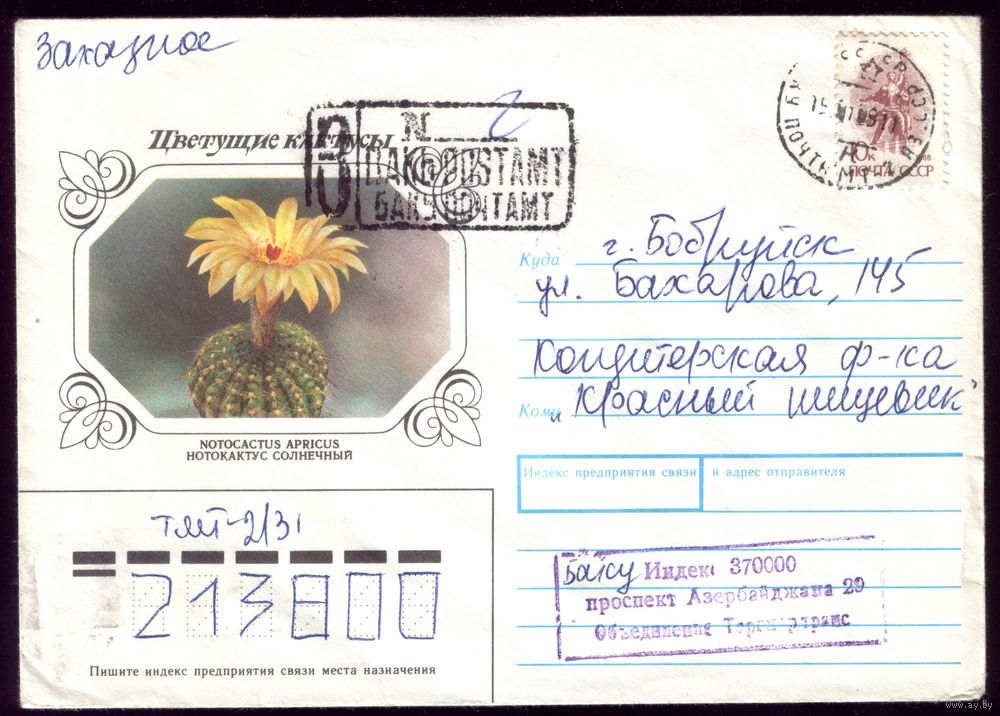 Заказное
Цветущие кактусы
З
N 2
BAKЬ POSTAMT
БАКУ ПОЧТАМТ
СССР
10к
1988
ПОЧТА СССР
Куда г. Бобруйск
ул. Бахарова, 145
Кондитерская ф-ка
Кому „Красный пищевик"
NOTOCACTUS APRICUS
НОТОКАКТУС СОЛНЕЧНЫЙ
Индекс предприятия связи и адрес отправителя
213800
Баку Индекс 370000
проспект Азербайджана 29
Объединение
Пишите индекс предприятия связи места назначения
www.ay.by